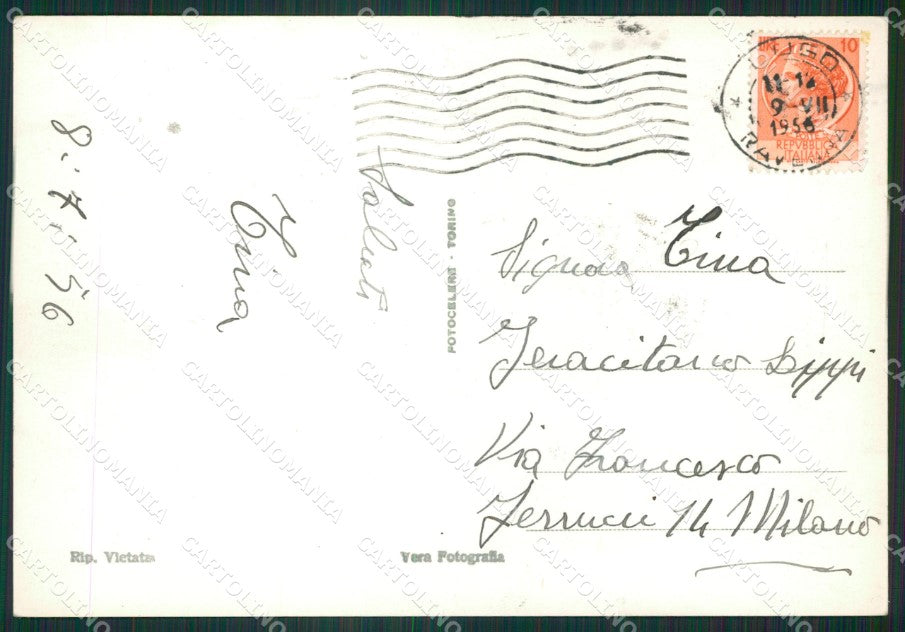 8.7.56
Saluti
Tina
FOTOCELERE - TORINO
LUGO
11-12
9 VII
1956
RAVENNA
LIRE 10
POSTE
REPVBBLICA
ITALIANA
Signora Tina
Jeracitano Lippi
Via Francesco
Ferrucci 14 Milano
Rip. Vietata
Vera Fotografia
CARTOLINOMANIA